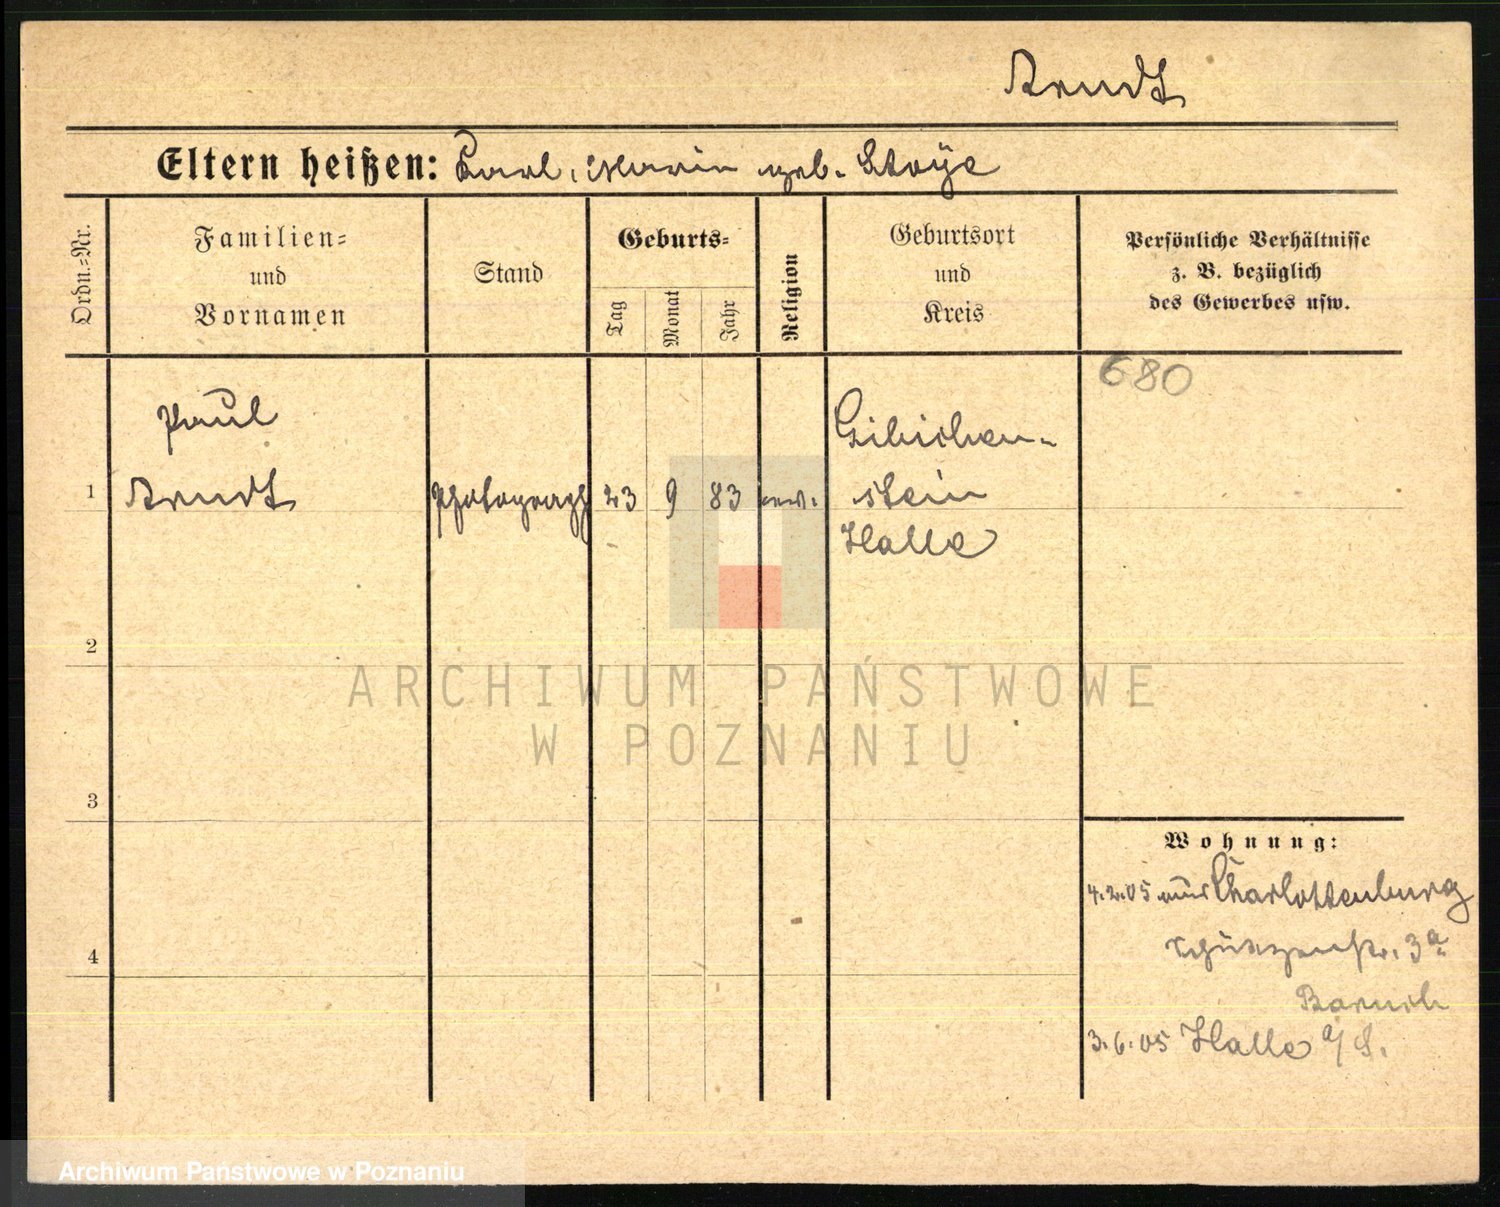 Arndt
Eltern heißen: Carl, Marie geb. Stoÿe
Ordn.-Nr.
Familien-
und
Vornamen
Stand
Geburts-
Tag
Monat
Jahr
Religion
Geburtsort
und
Kreis
Persönliche Verhältnisse
z. B. bezüglich
des Gewerbes usw.
680
1
Paul
Arndt
Photograph
23
9
83
ev.
Gibichen-
stein
Halle
2
ARCHIWUM PAŃSTWOWE
W POZNANIU
3
Wohnung:
4.2.05 aus Charlottenburg
Schützenstr. 3a
4
Baruch
3.6.05 Halle a/S.
Archiwum Państwowe w Poznaniu